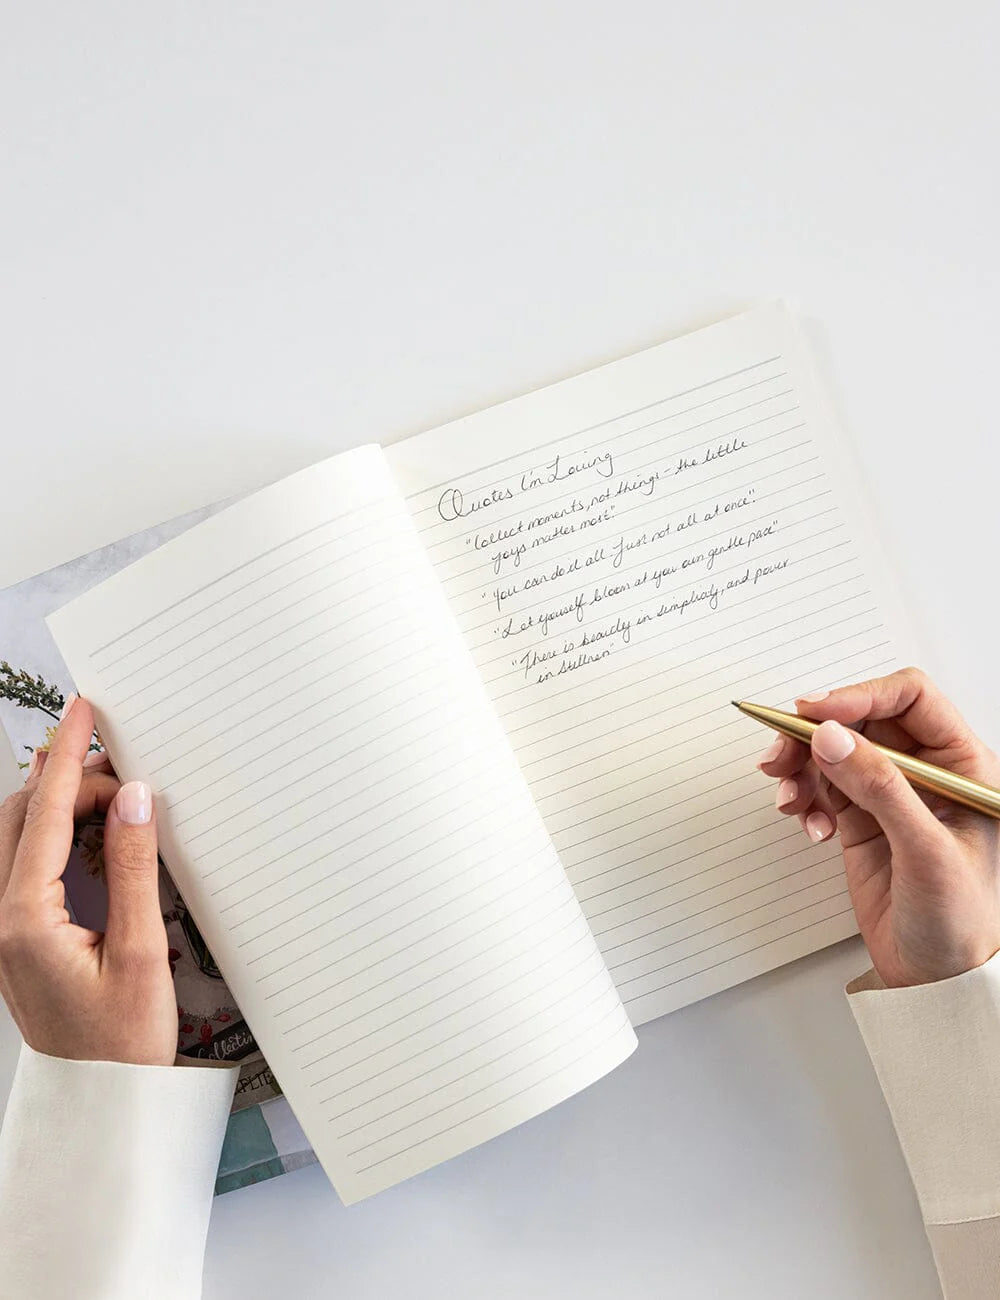 Quotes I'm Loving
"Collect moments, not things - the little
joys matter most"
"You can do it all. Just not all at once".
"Let yourself bloom at your own gentle pace"
"There is beauty in simplicity, and power
in stillness"
Collectin
PLIE